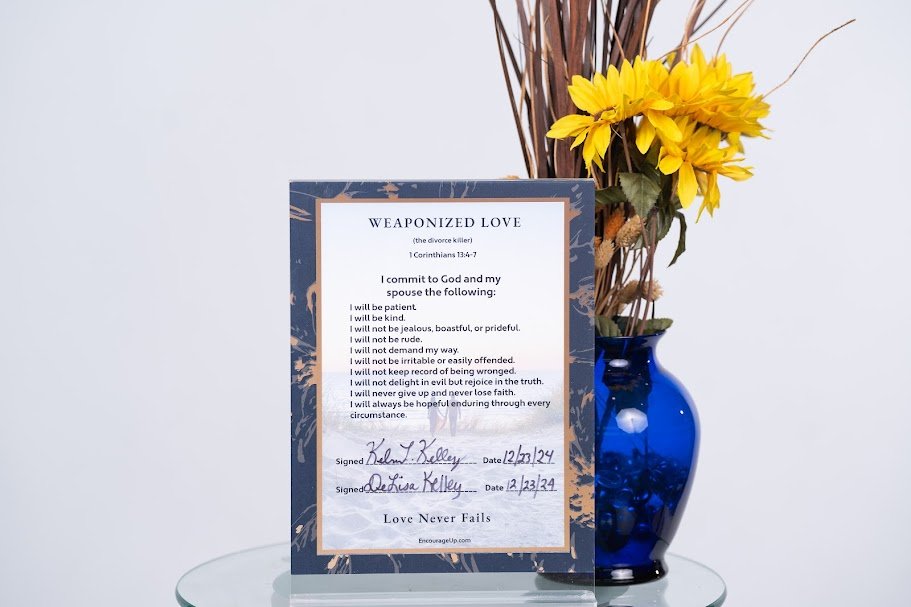 WEAPONIZED LOVE
(the divorce killer)
1 Corinthians 13:4-7
I commit to God and my
spouse the following:
I will be patient.
I will be kind.
I will not be jealous, boastful, or prideful.
I will not be rude.
I will not demand my way.
I will not be irritable or easily offended.
I will not keep record of being wronged.
I will not delight in evil but rejoice in the truth.
I will never give up and never lose faith.
I will always be hopeful enduring through every
circumstance.
Signed Kelley Date 12/23/24
Signed DeLisa Kelley Date 12/23/24
Love Never Fails
EncourageUp.com